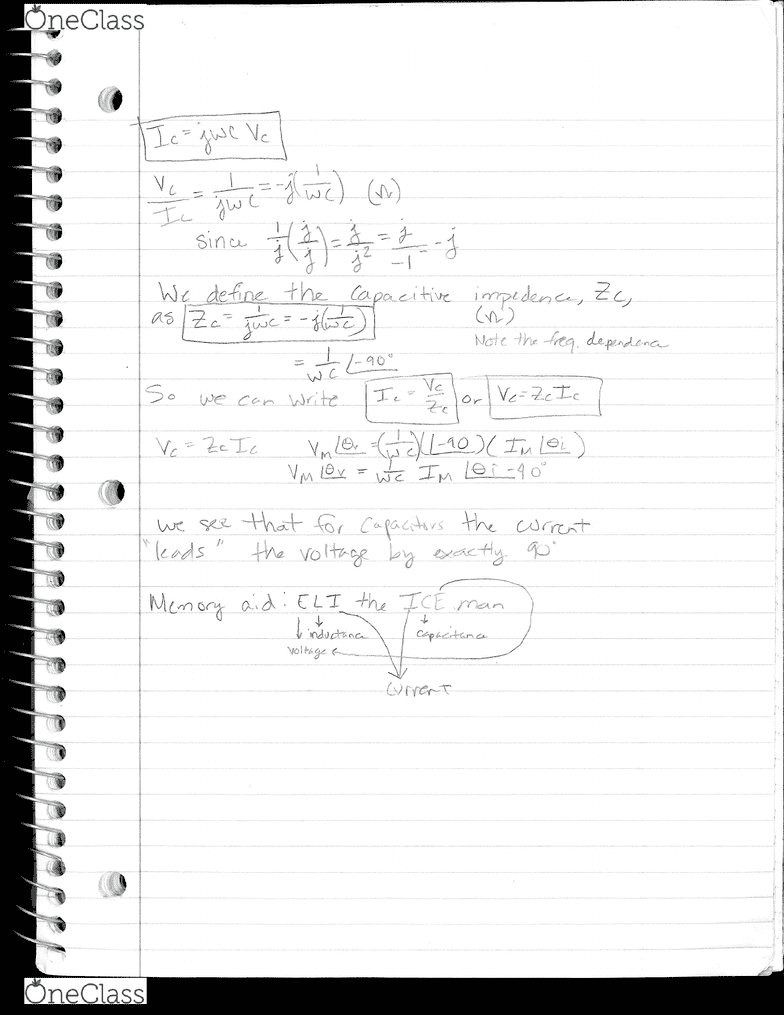 OneClass
Ic = jωC Vc
Vc/Ic = 1/jωC = -j(1/ωC) (Ω)
since 1/j (j/j) = j/j² = j/-1 = -j
We define the capacitive impedence, Zc,
as Zc = 1/jωC = -j(1/ωC) (Ω)
Note the freq. dependence
= 1/ωC ∠-90°
So we can write Ic = Vc/Zc or Vc = Zc Ic
Vc = Zc Ic VM∠θv = (1/ωC)(∠-90)(IM∠θi)
VM∠θv = 1/ωC IM ∠θi-90°
we see that for capacitors the current
"leads" the voltage by exactly 90°
Memory aid: ELI the ICE man
inductance capacitance
voltage
current
OneClass